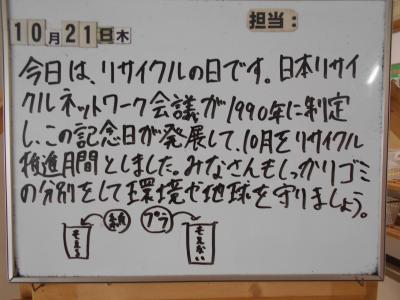 10月21日木
担当:
今日は、リサイクルの日です。日本リサイ
クルネットワーク会議が1990年に制定
し、この記念日が発展して、10月をリサイクル
推進月間としました。みなさんもしっかりゴミ
の分別をして環境や地球を守りましょう。
紙 プラ
もえる もえない